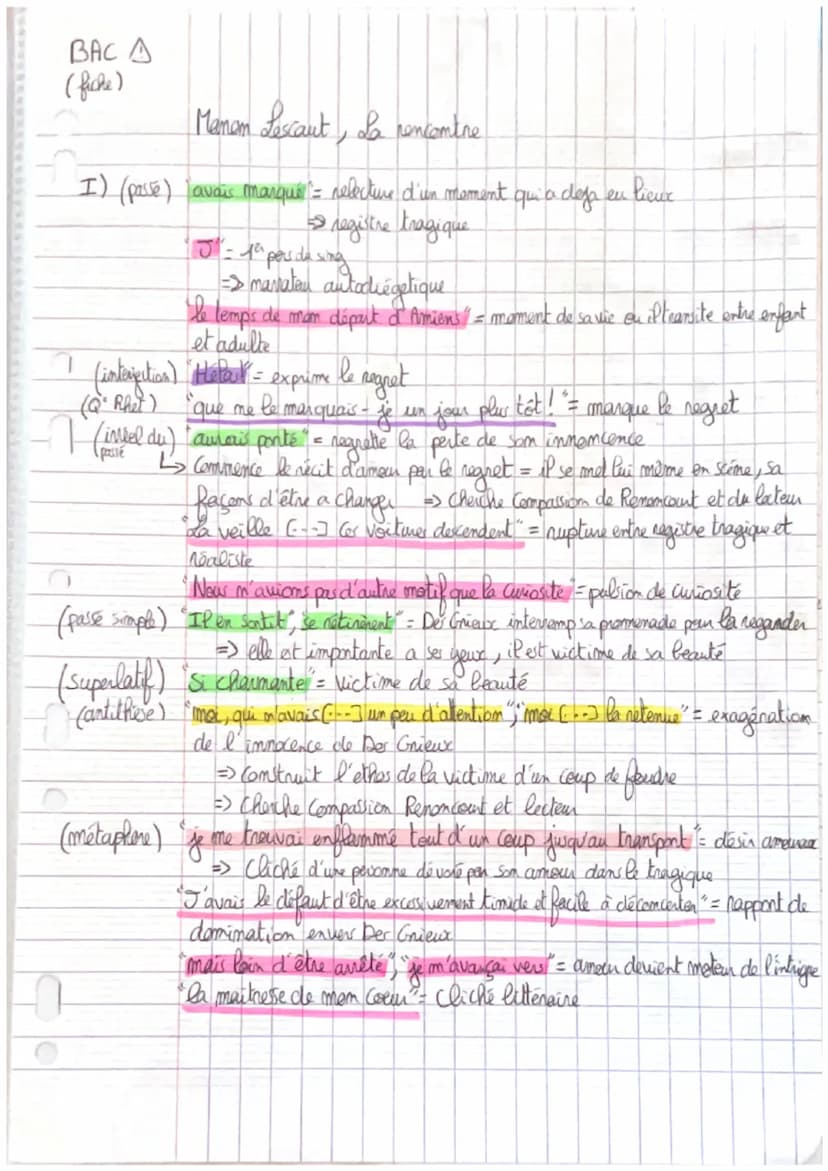 BAC ⚠
(fiche)
Manon Lescaut, La rencontre
I) (passé) "avais marqué" = relecture d'un moment qui a deja eu lieux
=> registre tragique
"J'" = 1e pers du sing
=> narrateur autodiégetique
"le temps de mon départ d'Amiens" = moment de sa vie ou il transite entre enfant
et adulte
(interjection) "Hélas" = exprime le regret
(Q° Rhet) "que ne le marquais-je un jour plus tôt !" = marque le regret
(irréel du passé) "aurais porté" = regrette la perte de son innocence
↳ Commence le récit d'amour par le regret = il se met lui même en scène, sa
façons d'être a changer => Cherche Compassion de Renoncourt et du lecteur
"La veille [---] ces voitures descendent" = rupture entre registre tragique et
réaliste
"Nous n'avions pas d'autre motif que la curiosité" = pulsion de curiosité
(passé simple) "Il en sortit", "se retirèrent" = Des Grieux interromp sa promenade pour la regarder
=> elle est importante a ses yeux, il est victime de sa beauté
(superlatif) "Si charmante" = victime de sa beauté
(antithèse) "moi, qui n'avais [---] un peu d'attention" ; "moi [---] la retenue" = exagération
de l'innocence de Des Grieux
=> Construit l'ethos de la victime d'un coup de foudre
=> Cherche Compassion Renoncourt et lecteur
(métaphore) "je me trouvai enflammé tout d'un coup jusqu'au transport" = désir amoureux
=> Cliché d'une personne dévoré par son amour dans le tragique
"J'avais le défaut d'être excessivement timide et facile à déconcerter" = rapport de
domination envers Des Grieux
"mais loin d'être arrêté", "je m'avançai vers" = amour devient moteur de l'intrigue
"la maitresse de mon Coeur" = Cliché littéraire